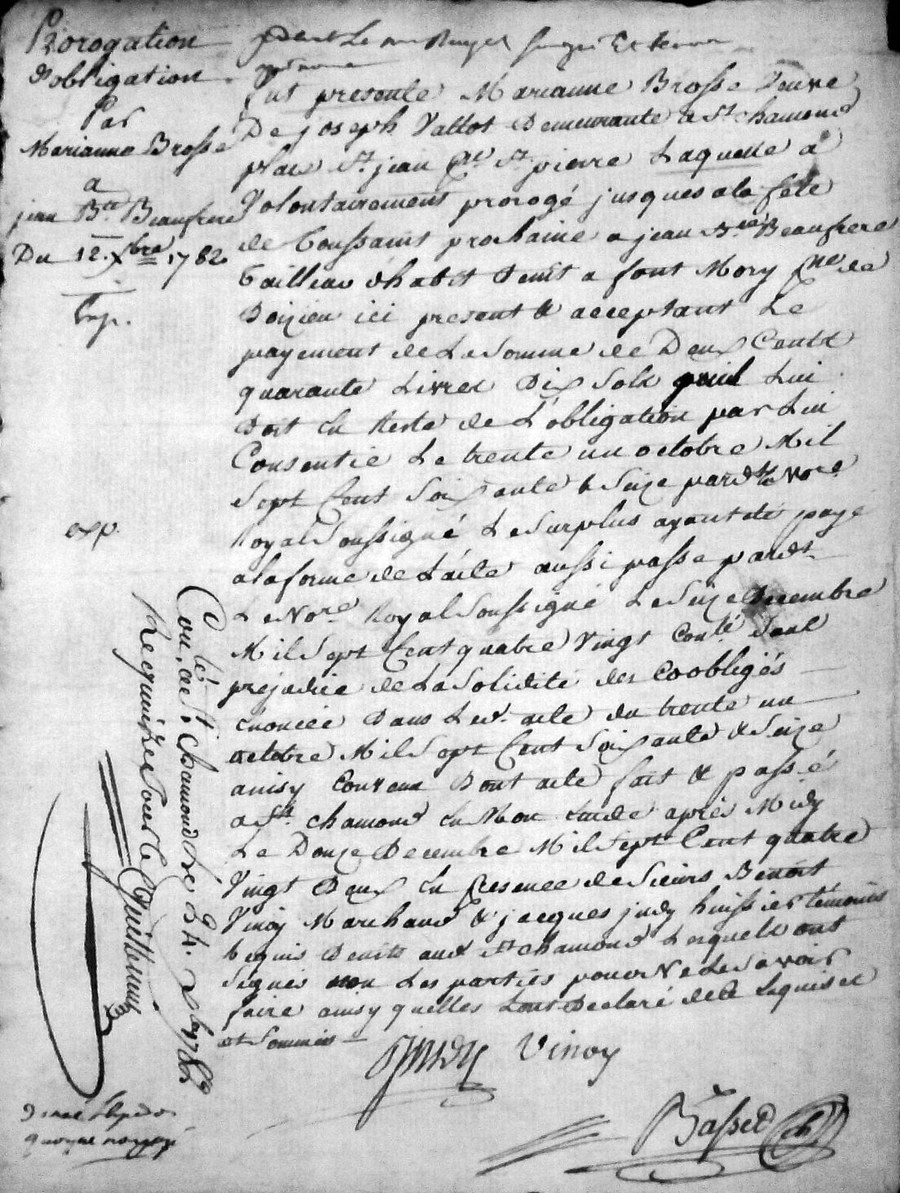 Prorogation
d'obligation
Par
Marianne Brosse
a
jean Bte Beaufrere
Du 12. Xbre 1782
Exp.
exp.
Fut presente Marianne Brosse Veuve
De joseph Vallot Demeurante a St chamond
place St jean St pierre Laquelle a
Volontairement prorogé jusques a la fete
de Toussaint prochaine a jean Bte Beaufrere
Tailleur d'habit a font Mory de
Doizieu ici present & acceptant Le
payement de La Somme de Deux Cents
quarante Livres Dix Sols quil Lui
Doit En Reste de L'obligation par Lui
Consentie Le trente un octobre Mil
Sept Cent Soixante & Seize pardt Le Nore
Royal Soussigné Le Surplus ayant été payé
a la forme de L'acte aussi passe pardt
Le Nore Royal Soussigné Le Seize Decembre
Mil Sept Cent quatre Vingt Conlé Sans
prejudice de La Solidité des Coobligés
Enoncée Dans Led. acte du trente un
octobre Mil Sept Cent Soixante & Seize
ainsy Convenu Dont acte fait & passé
a St chamond En Mon Etude après Midy
Le Douze Decembre Mil Sept Cent quatre
Vingt Deux En Presence de Sieurs Benoit
Vinoy Marchand & jacques judy huissier témoins
Requis aud. St chamond Lesquels ont
Signés non Les parties pour Ne Le Savoir
faire ainsy quelles L'ont Declaré de ce Requises
et Sommées
Conlé a St chamond Le 24. Xbre 1782
Reçu
judy Vinoy
Basset